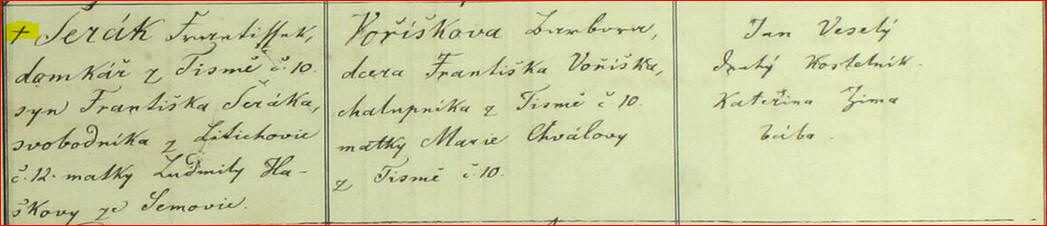 † Šerák Frantisšek,
domkář z Tismě č. 10.
syn Františka Šeráka,
svobodníka z Litichovic
č. 12. matky Ludmily Ha-
škovy ze Semovic.
Voříškova Barbora,
dcera Františka Voříška,
chalupníka z Tismě č. 10.
matky Marie Chválovy
z Tismě č. 10.
Jan Veselý
kostelník.
Kateřina Zima
bába.